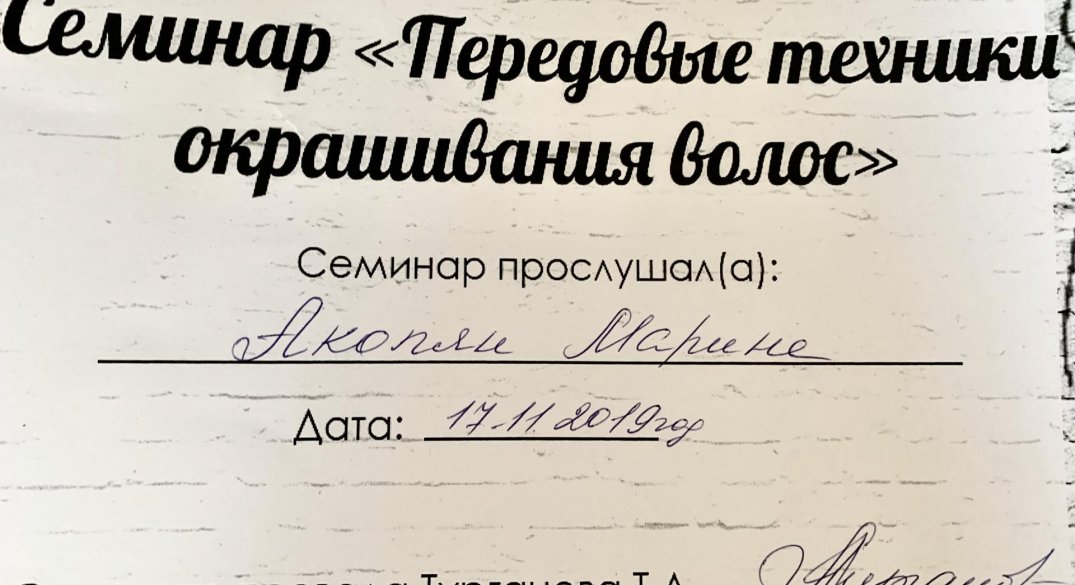 Семинар «Передовые техники
окрашивания волос»
Семинар прослушал(а):
Акопян Марине
Дата: 17.11.2019 год
Т.Д.